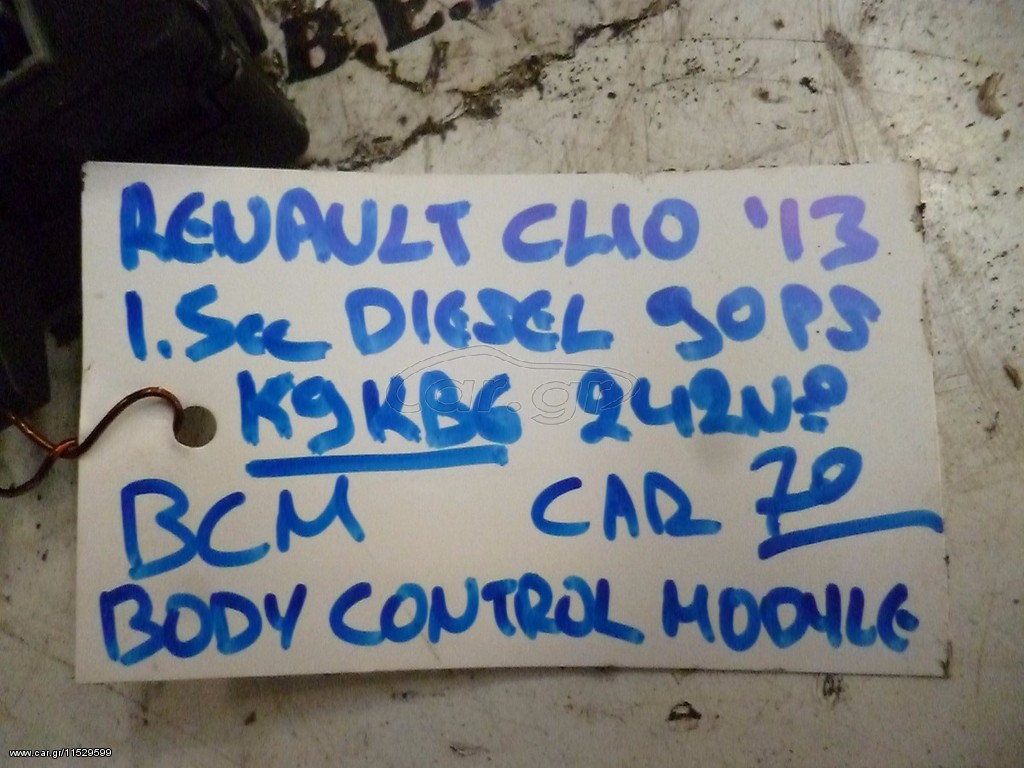 RENAULT CLIO '13
1.5cc DIESEL 90PS
K9KB6 242Nº
BCM CAR 70
BODY CONTROL MODYLE
car.gr
www.car.gr/11529599